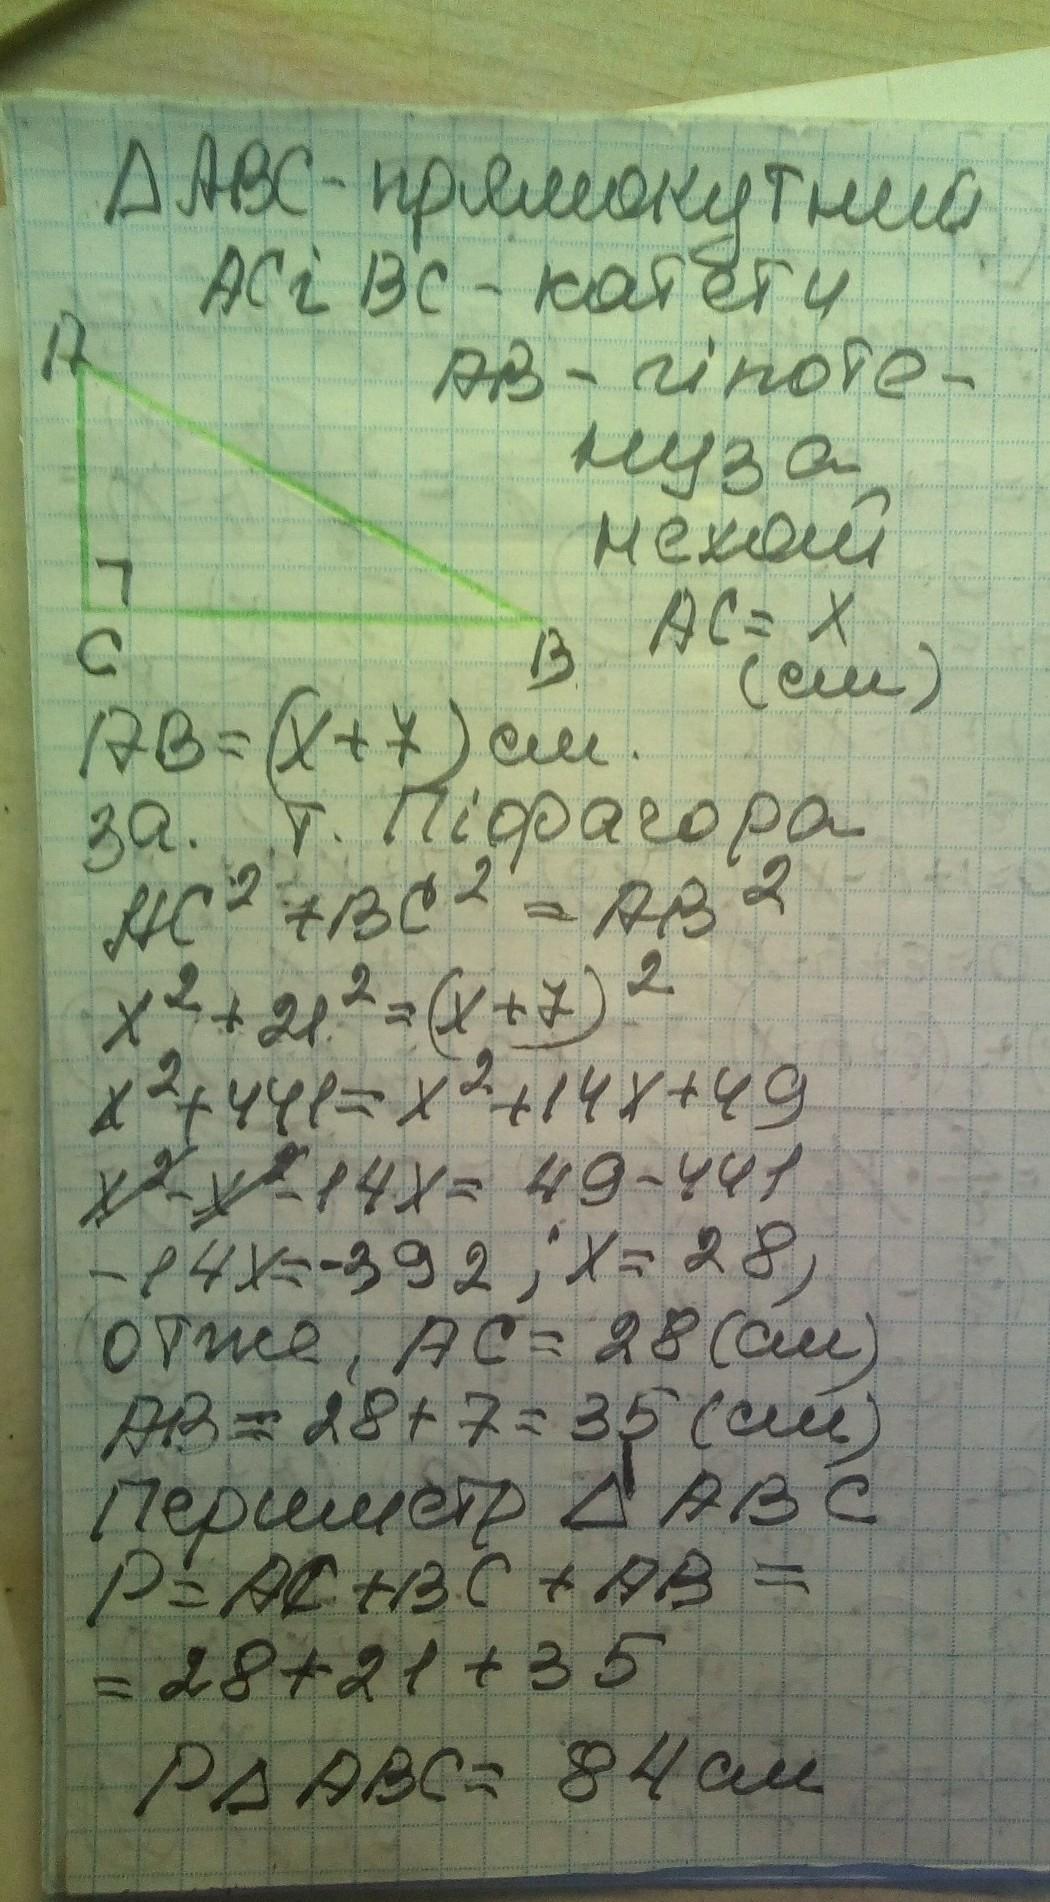 Δ ABC - прямокутний
AC і BC - катети
A
AB - гіпоте-
нуза
нехай
AC = x
(см)
C
B
AB = (x+7) см.
за. т. Піфагора
AC² + BC² = AB²
x² + 21² = (x+7)²
x² + 441 = x² + 14x + 49
x² - x² - 14x = 49 - 441
-14x = -392; x = 28,
отже, AC = 28 (см)
AB = 28 + 7 = 35 (см)
Периметр Δ ABC
P = AC + BC + AB =
= 28 + 21 + 35
P Δ ABC = 84 см